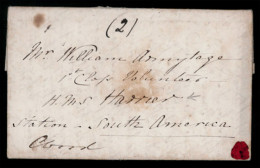 (2)
Mr William Armytage
1st Class Volunteer
H.M.S Harrier
Station - South America